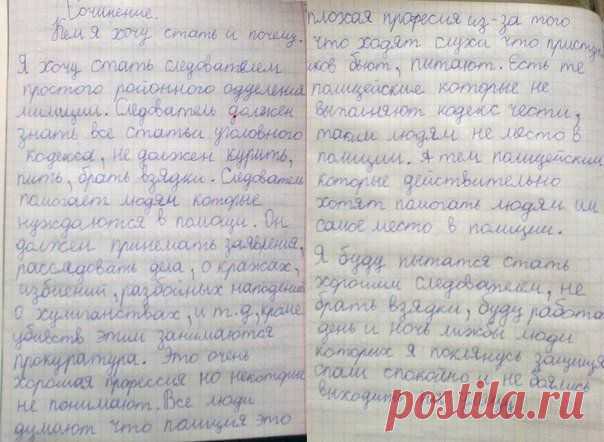 Сочинение.
Кем я хочу стать и почему.
Я хочу стать следователем
простого районного отделения
милиции. Следователь должен
знать все статьи уголовного
кодекса, не должен курить,
пить, брать взядки. Следователь
помогает людям которые
нуждаются в помощи. Он
должен принемать заявления,
расследовать дела, о кражах,
избиений, разбойных нападений
о хулиганствах, и т.д, кроме
убийств этим занимаются
прокуратура. Это очень
хорошая профессия но некоторые
не понимают. Все люди
думают что полиция это
плохая професия из-за того
что ходят слухи что приступ
ников бьют, питают. Есть те
полицейские которые не
выполняют кодекс чести,
таким людям не место в
полиции. А тем полицейским
которые действительно
хотят помогать людям им
самое место в полиции.
Я буду пытатся стать
хорошим следователем, не
брать взядки, буду работа
день и ночь лижбы люди
которих я поклянусь защища
спали спокойно и не боялись
выходить
postila.ru